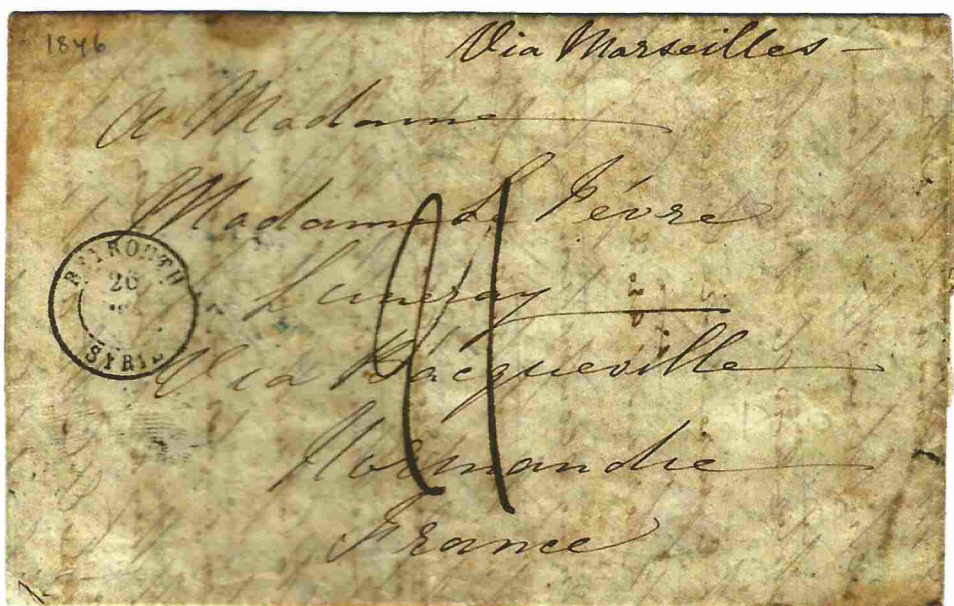 1846
Via Marseilles —
A Madame
Madame Le Févre
Luneray
Via Bacqueville
Normandie
France
BEYROUTH
26
SYRIE